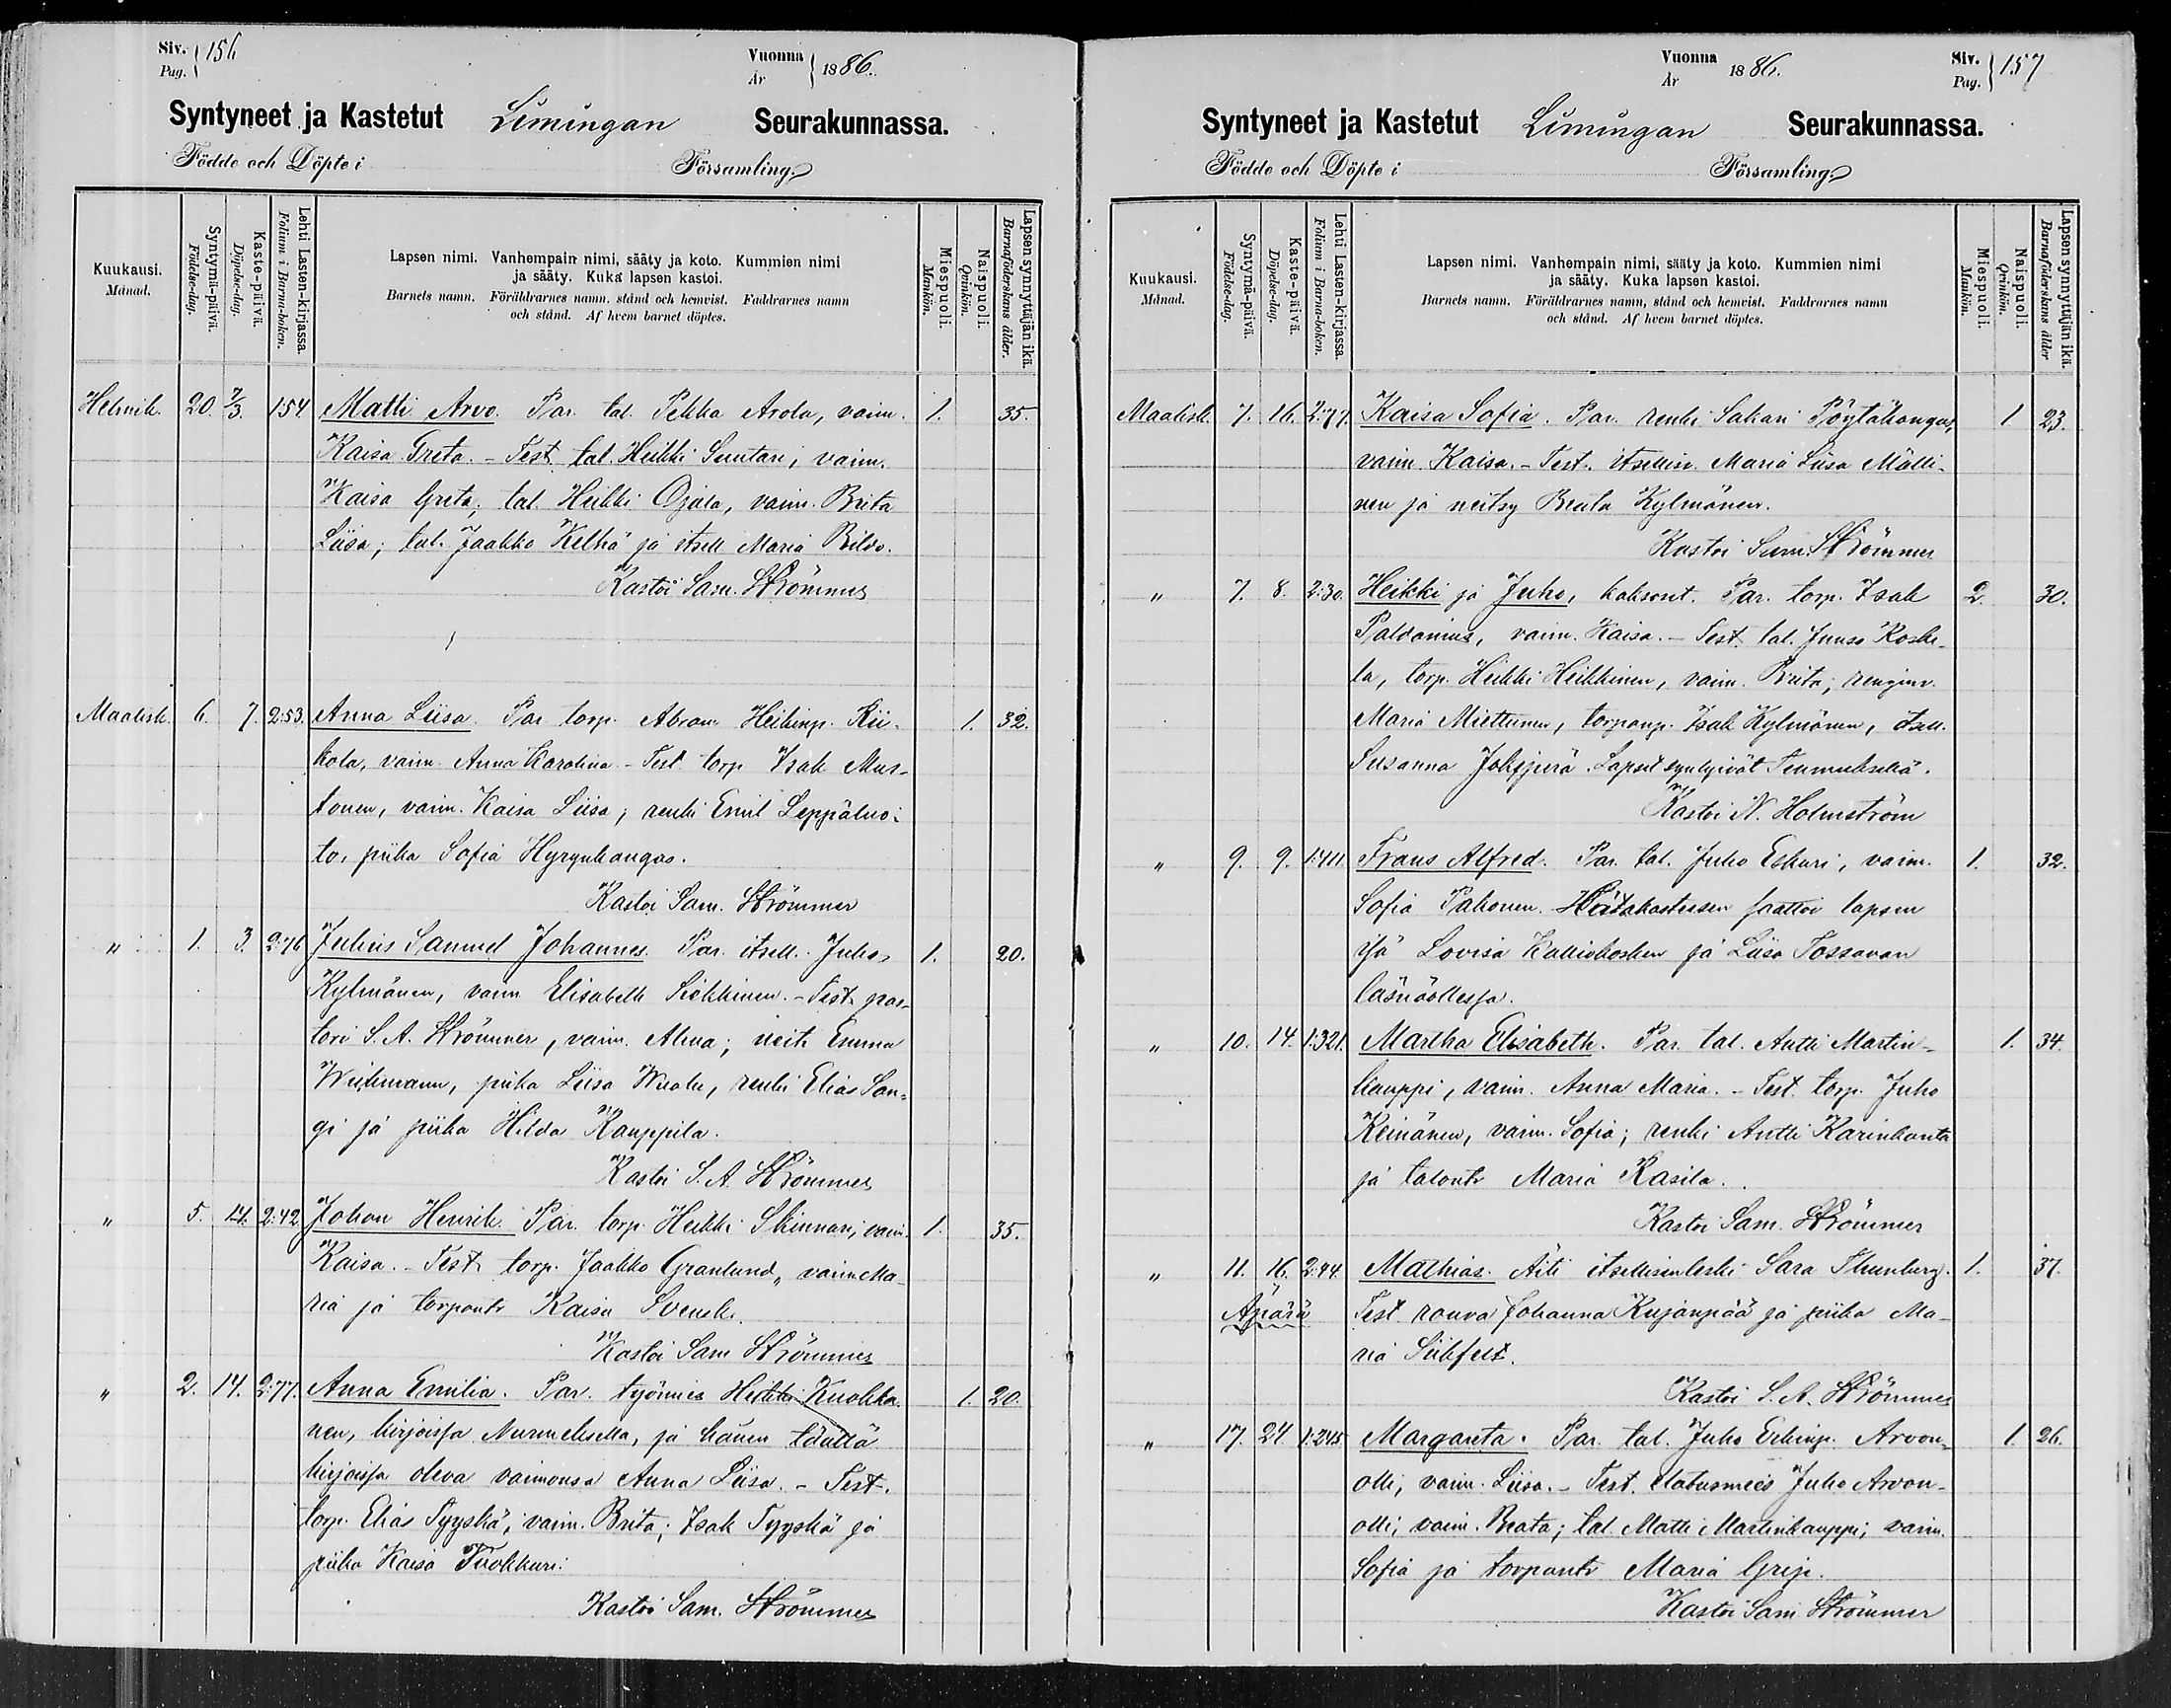 Siv. Pag. 156
Vuonna År 1886.
Syntyneet ja Kastetut Limingan Seurakunnassa.
Födde och Döpte i Församling.
Kuukausi. Månad.
Syntymä-päivä. Födelse-dag.
Kaste-päivä. Döpelse-dag.
Lehti Lasten-kirjassa. Folium i Barna-boken.
Lapsen nimi. Vanhempain nimi, sääty ja koto. Kummien nimi
ja sääty. Kuka lapsen kastoi.
Barnets namn. Föräldrarnes namn. stånd och hemvist. Faddrarnes namn
och stånd. Af hvem barnet döptes.
Miespuoli. Mankön.
Naispuoli. Qvinkön.
Lapsen synnyttäjän ikä. Barnaföderskans ålder.
Helmik. 20. 7/3. 154 Matti Arvo. Par. tal. Pekka Arola, vaim. 1. 35.
Kaisa Greta. - Test. tal. Heikki Suutari, vaim.
Kaisa Greta; tal. Heikki Ojala, vaim. Brita
Liisa; tal. Jaakko Kelhä ja itsell Maria Rildo.
Kastoi Sam. Strömmer
Maalisk. 6. 7. 2:53. Anna Liisa. Par torp. Abram Heikinp. Rii- 1. 32.
kola, vaim. Anna Karolina - Test torp. Isak Mus-
tonen, vaim. Kaisa Liisa; renki Emil Leppäluo-
to, piika Sofia Hyrynkangas.
Kastoi Sam. Strömmer
" 1. 3. 2:76 Julius Samuel Johannes. Par. itsell. Juho 1. 20.
Kylmänen, vaim Elisabeth Sirkkinen. - Test. pas-
tori S. A. Strömmer, vaim. Alma; neiti Emma
Weikmann, piika Liisa renki Elias San-
gi ja piika Hilda Kauppila.
Kastoi S. A. Strömmer
" 5. 14. 2:42 Johan Henrik. Par. torp. Heikki Skinnari, vaim. 1. 35.
Kaisa. - Test. torp. Jaakko Granlund, vaim Ma-
ria ja torpantr Kaisa Svensk.
Kastoi Sam Strömmer
" 2. 14. 2:77. Anna Emilia. Par. työmies Heikki Kuokka- 1. 20.
nen, kirjoissa Nurmeksella, ja hänen täällä
kirjoissa oleva vaimonsa Anna Liisa. - Test.
torp. Elias Tyyskä, vaim. Brita; Isak Tyyskä ja
piika Kaisa Tuokkuri.
Kastoi Sam. Strömmer
Vuonna År 1886.
Siv. Pag. 157
Syntyneet ja Kastetut Limingan Seurakunnassa.
Födde och Döpte i Församling.
Kuukausi. Månad.
Syntymä-päivä. Födelse-dag.
Kaste-päivä. Döpelse-dag.
Lehti Lasten-kirjassa. Folium i Barna-boken.
Lapsen nimi. Vanhempain nimi, sääty ja koto. Kummien nimi
ja sääty. Kuka lapsen kastoi.
Barnets namn. Föräldrarnes namn, stånd och hemvist. Faddrarnes namn
och stånd. Af hvem barnet döptes.
Miespuoli. Mankön.
Naispuoli. Qvinkön.
Lapsen synnyttäjän ikä. Barnaföderskans ålder
Maalisk. 7. 16. 2:77. Kaisa Sofia. Par. renki Sakari Pöytäkangas, 1 23.
vaim. Kaisa. - Test. itsellisn. Maria Liisa Mälli-
nen ja neitsy Beata Kylmänen.
Kastoi Sam. Strömmer
" 7. 8. 2:30. Heikki ja Juho, kaksoset. Par. torp. Isak 2. 30.
Paldanius, vaim. Kaisa. - Test. tal. Juuso Koske-
la, torp. Heikki Heikkinen, vaim. Brita; renginv.
Maria Miettunen, torpanp. Isak Kylmänen, itsell.
Susanna Jokijärä. Lapset syntyivät Temmeksellä.
Kastoi N. Holmström
" 9. 9. 1:411 Frans Alfred. Par. tal. Juho Eskuri, vaim. 1. 32.
Sofia Pahonen. Hätäkasteesen saattoi lapsen
isä Lovisa Kalliokosken ja Liisa Tossavan
läsnäollessa.
" 10. 14. 1:321. Martha Elisabeth. Par. tal. Antti Martin- 1. 34.
kauppi, vaim. Anna Maria. - Test. torp. Juho
Keinänen, vaim. Sofia; renki Antti Karinkanta
ja talontr Maria Kasila.
Kastoi Sam. Strömmer
" 11. 16. 2:44. Mathias. Äiti itsellisenleski Sara Thunberg. 1. 37.
Äpärä Test rouva Johanna Kujanpää ja piika Ma-
ria
Kastoi S. A. Strömmer
" 17. 24. 1:245 Marganta. Par. tal. Juho Erkinp. Arvon- 1. 26.
olli, vaim. Liisa. - Test. elatusmies Juho Arvon-
olli, vaim. Beata; tal. Matti Martinkauppi, vaim.
Sofia ja torpantr Maria Grip.
Kastoi Sam Strömmer